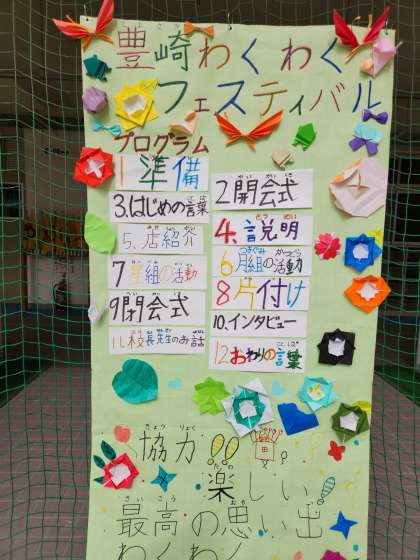 豊崎わくわく
フェスティバル
プログラム
1準備
2開会式
3.はじめの言葉
4.説明
5.店紹介
6月組の活動
7星組の活動
8片付け
9閉会式
10.インタビュー
11.校長先生のお話
12おわりの言葉
きょうりょく
協力
たの
楽しい
さいこう おも で
最高の思い出
わくわく